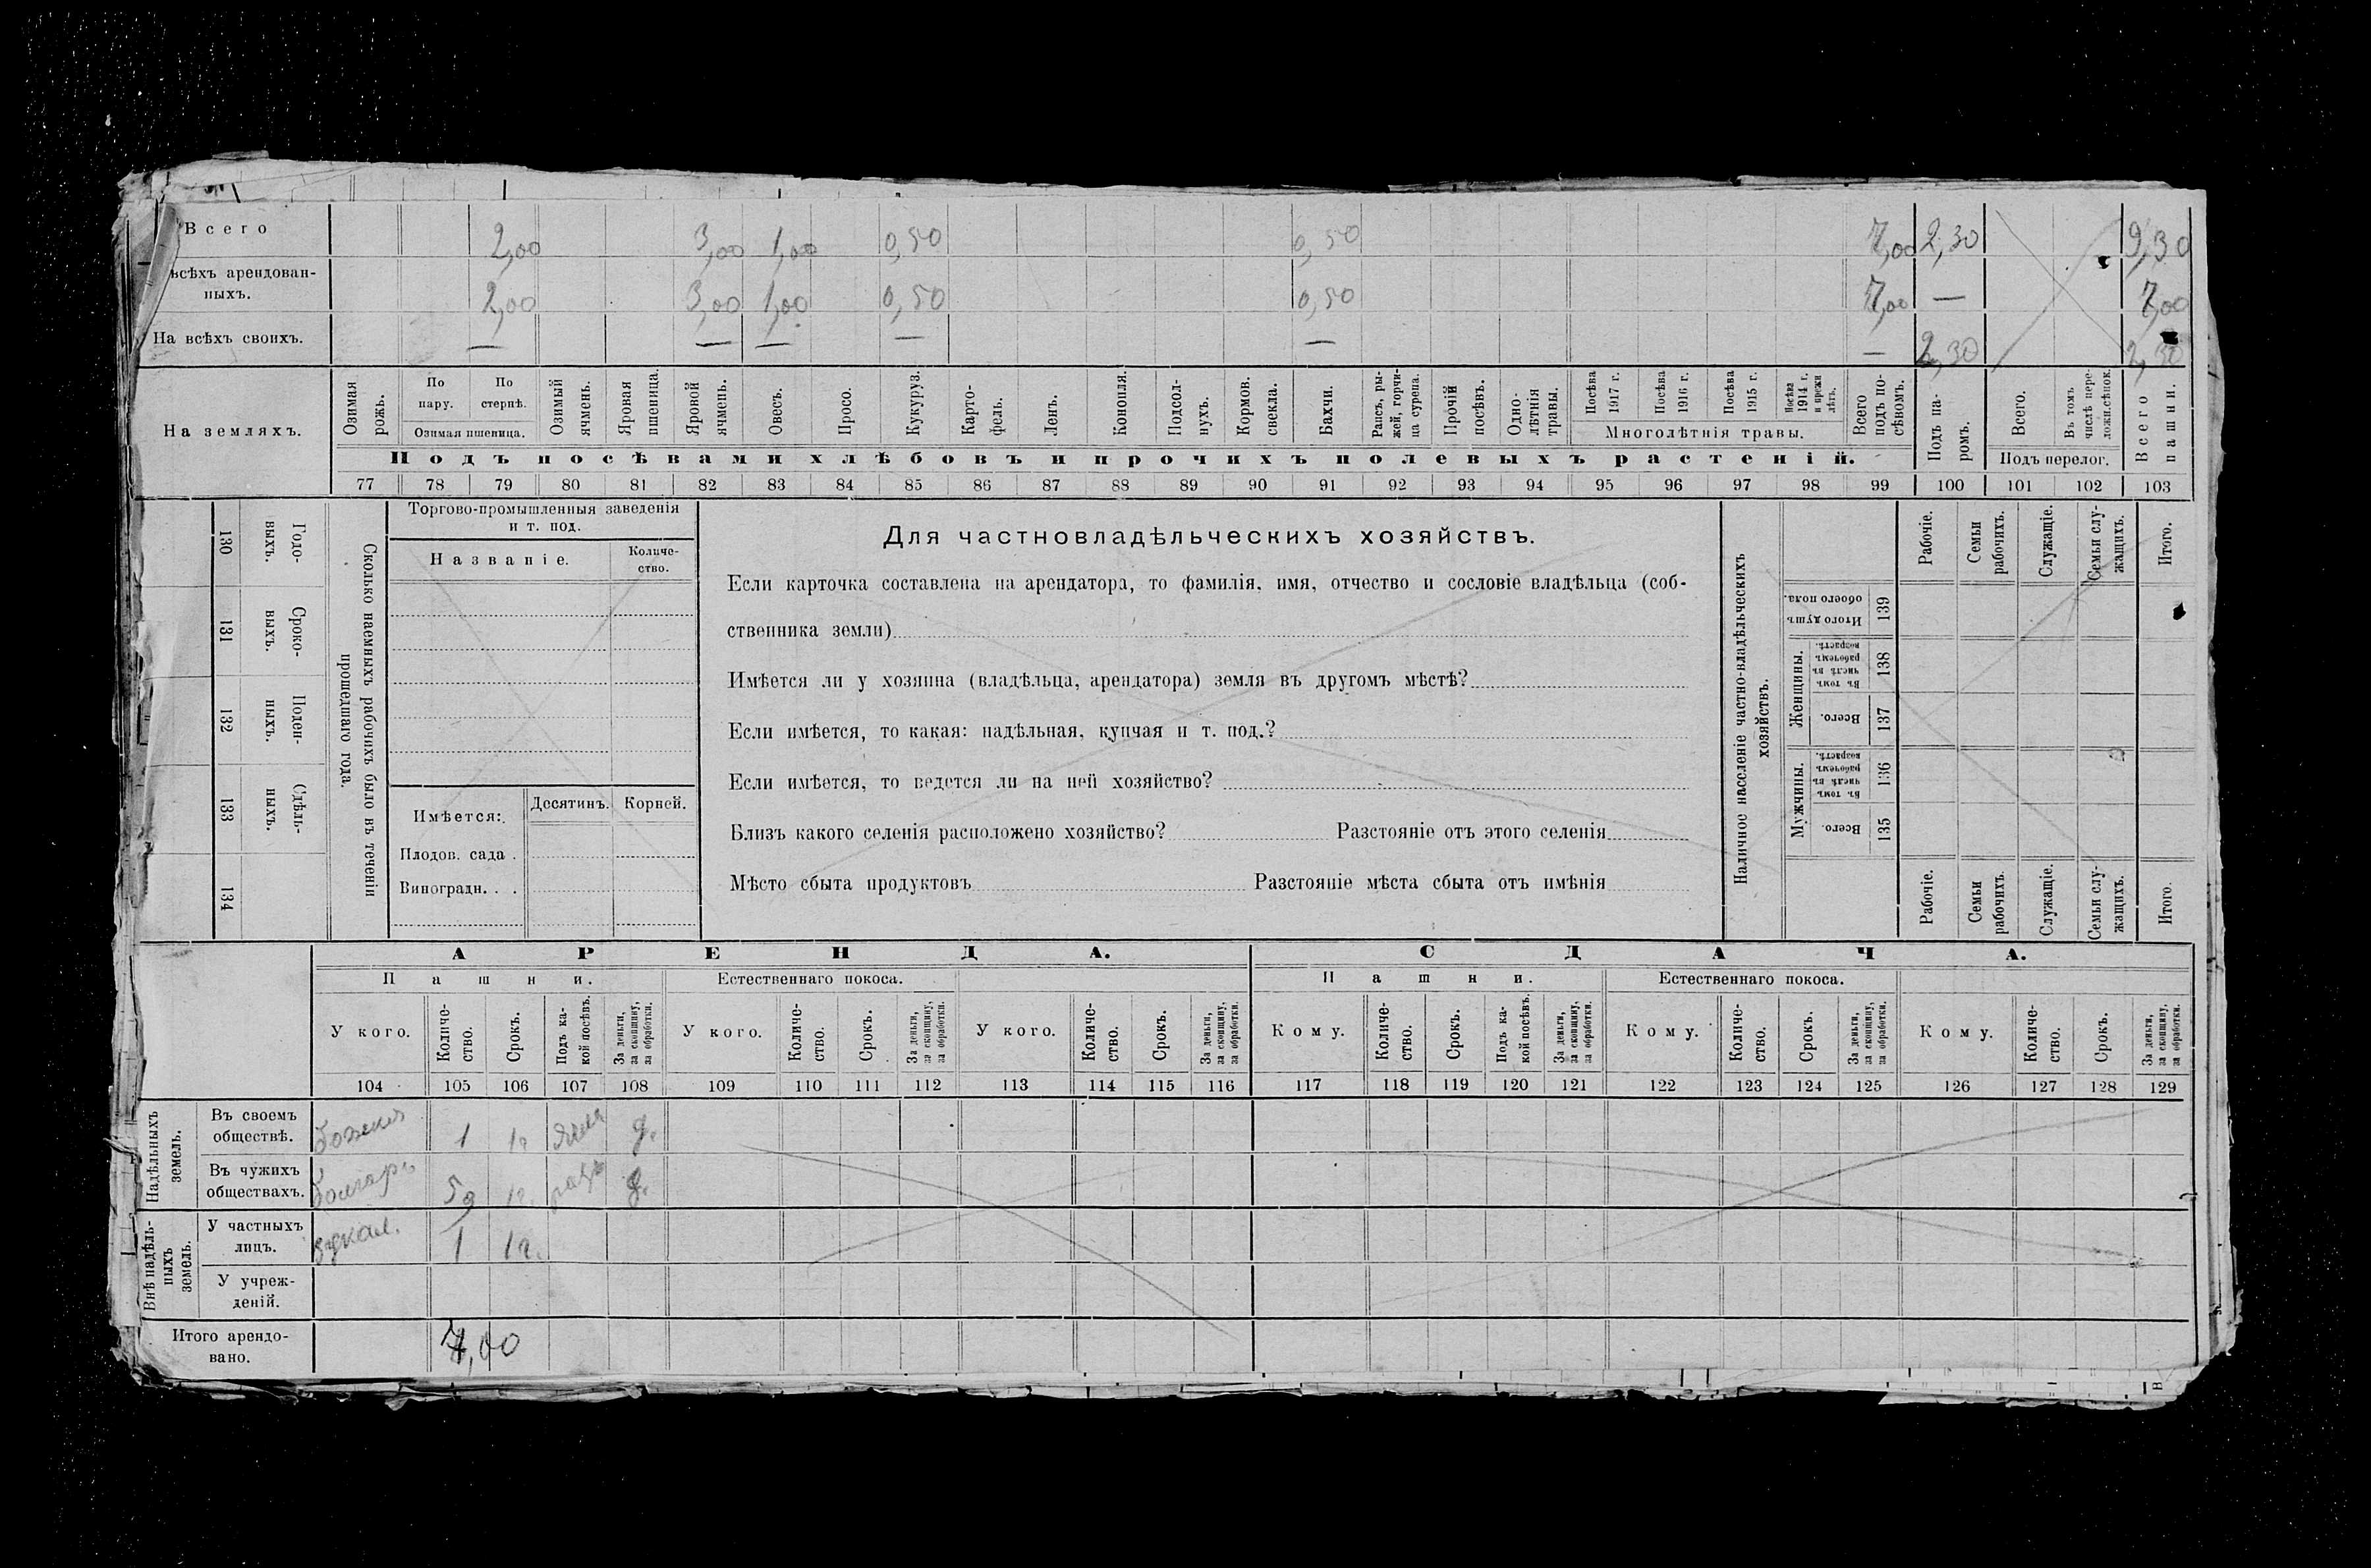 Всего 2,00 3,00 1,00 0,50 0,50 7,00 2,30 9,30
всѣхъ арендован-
ныхъ. 2,00 3,00 1,00 0,50 0,50 7,00 — 7,00
На всѣхъ своихъ. — — — — — — 2,30 2,30
На земляхъ.
Озимая рожь.
По пару.
По стернѣ.
Озимая пшеница.
Озимый ячмень.
Яровая пшеница.
Яровой ячмень.
Овесъ.
Просо.
Кукуруз.
Карто-
фель.
Ленъ.
Конопля.
Подсол-
нухъ.
Кормов. свекла.
Бахчи.
Рапсъ, ры-
жей, горчи-
ца сурепа.
Прочій посѣвъ.
Одно-
лѣтнія травы.
Посѣва 1917 г.
Посѣва 1916 г.
Посѣва 1915 г.
Посѣва 1914 г. и прежн лѣтъ.
Многолѣтнія травы.
Всего подъ по-
сѣвомъ.
Подъ па-
ромъ.
Всего.
Въ томъ числѣ пере-
ложн.сѣнок.
Подъ перелог.
Всего пашни.
Подъ посѣвами хлѣбовъ и прочихъ полевыхъ растеній.
77 78 79 80 81 82 83 84 85 86 87 88 89 90 91 92 93 94 95 96 97 98 99 100 101 102 103
Годо-
выхъ.
130
Сроко-
выхъ.
131
Поден-
ныхъ.
132
Сдѣль-
ныхъ.
133
134
Сколько наемныхъ рабочихъ было въ теченіи
прошедшаго года.
Торгово-промышленныя заведенія
и т. под.
Названіе.
Количе-
ство.
Имѣется:
Десятинъ.
Корней.
Плодов. сада .
Виноградн. . .
Для частновладѣльческихъ хозяйствъ.
Если карточка составлена на арендатора, то фамилія, имя, отчество и сословіе владѣльца (соб-
ственника земли)
Имѣется ли у хозяина (владѣльца, арендатора) земля въ другомъ мѣстѣ?
Если имѣется, то какая: надѣльная, купчая и т. под.?
Если имѣется, то ведется ли на ней хозяйство?
Близъ какого селенія расположено хозяйство? Разстояніе отъ этого селенія
Мѣсто сбыта продуктовъ Разстояніе мѣста сбыта отъ имѣнія
Наличное населеніе частно-владѣльческихъ
хозяйствъ.
Рабочіе.
Семьи рабочихъ.
Служащіе.
Семьи слу-
жащихъ.
Итого.
Итого душъ обоего пола.
139
Женщины.
Въ томъ числѣ въ рабочемъ возрастѣ.
138
Всего.
137
Мужчины.
Въ томъ числѣ въ рабочемъ возрастѣ.
136
Всего.
135
Рабочіе.
Семьи рабочихъ.
Служащіе.
Семьи слу-
жащихъ.
Итого.
АРЕНДА. СДАЧА.
Пашни. Естественнаго покоса. Пашни. Естественнаго покоса.
У кого.
Количе-
ство.
Срокъ.
Подъ ка-
кой посѣвъ.
За деньги, за скопщину, за обработки.
У кого.
Количе-
ство.
Срокъ.
За деньги, за скопщину, за обработки.
У кого.
Количе-
ство.
Срокъ.
За деньги, за скопщину, за обработки.
Кому.
Количе-
ство.
Срокъ.
Подъ ка-
кой посѣвъ.
За деньги, за скопщину, за обработки.
Кому.
Количе-
ство.
Срокъ.
За деньги, за скопщину, за обработки.
Кому.
Количе-
ство.
Срокъ.
За деньги, за скопщину, за обработки.
104 105 106 107 108 109 110 111 112 113 114 115 116 117 118 119 120 121 122 123 124 125 126 127 128 129
Надѣльныхъ
земель.
Въ своемъ
обществѣ. 1 1г д.
Въ чужихъ
обществахъ. 5д 1г. д.
Внѣ надѣль-
ныхъ
земель.
У частныхъ
лицъ. 1 1г.
У учреж-
деній.
Итого арендо-
вано. 7,00